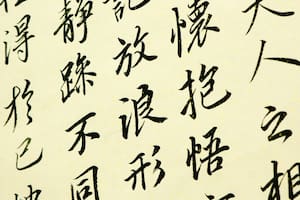 夫人之相
懷抱悟
託放浪形
靜躁不同
得於己快